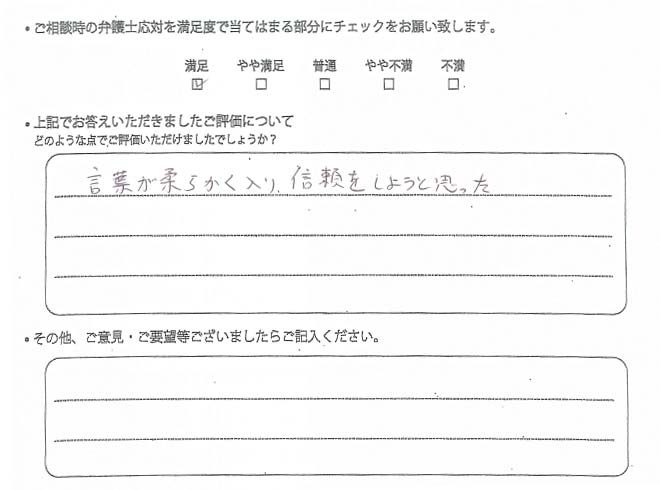 ・ご相談時の弁護士応対を満足度で当てはまる部分にチェックをお願い致します。
満足 やや満足 普通 やや不満 不満
☑ □ □ □ □
・上記でお答えいただきましたご評価について
どのような点でご評価いただけましたでしょうか？
言葉が柔らかく入り、信頼をしようと思った
・その他、ご意見・ご要望等ございましたらご記入ください。